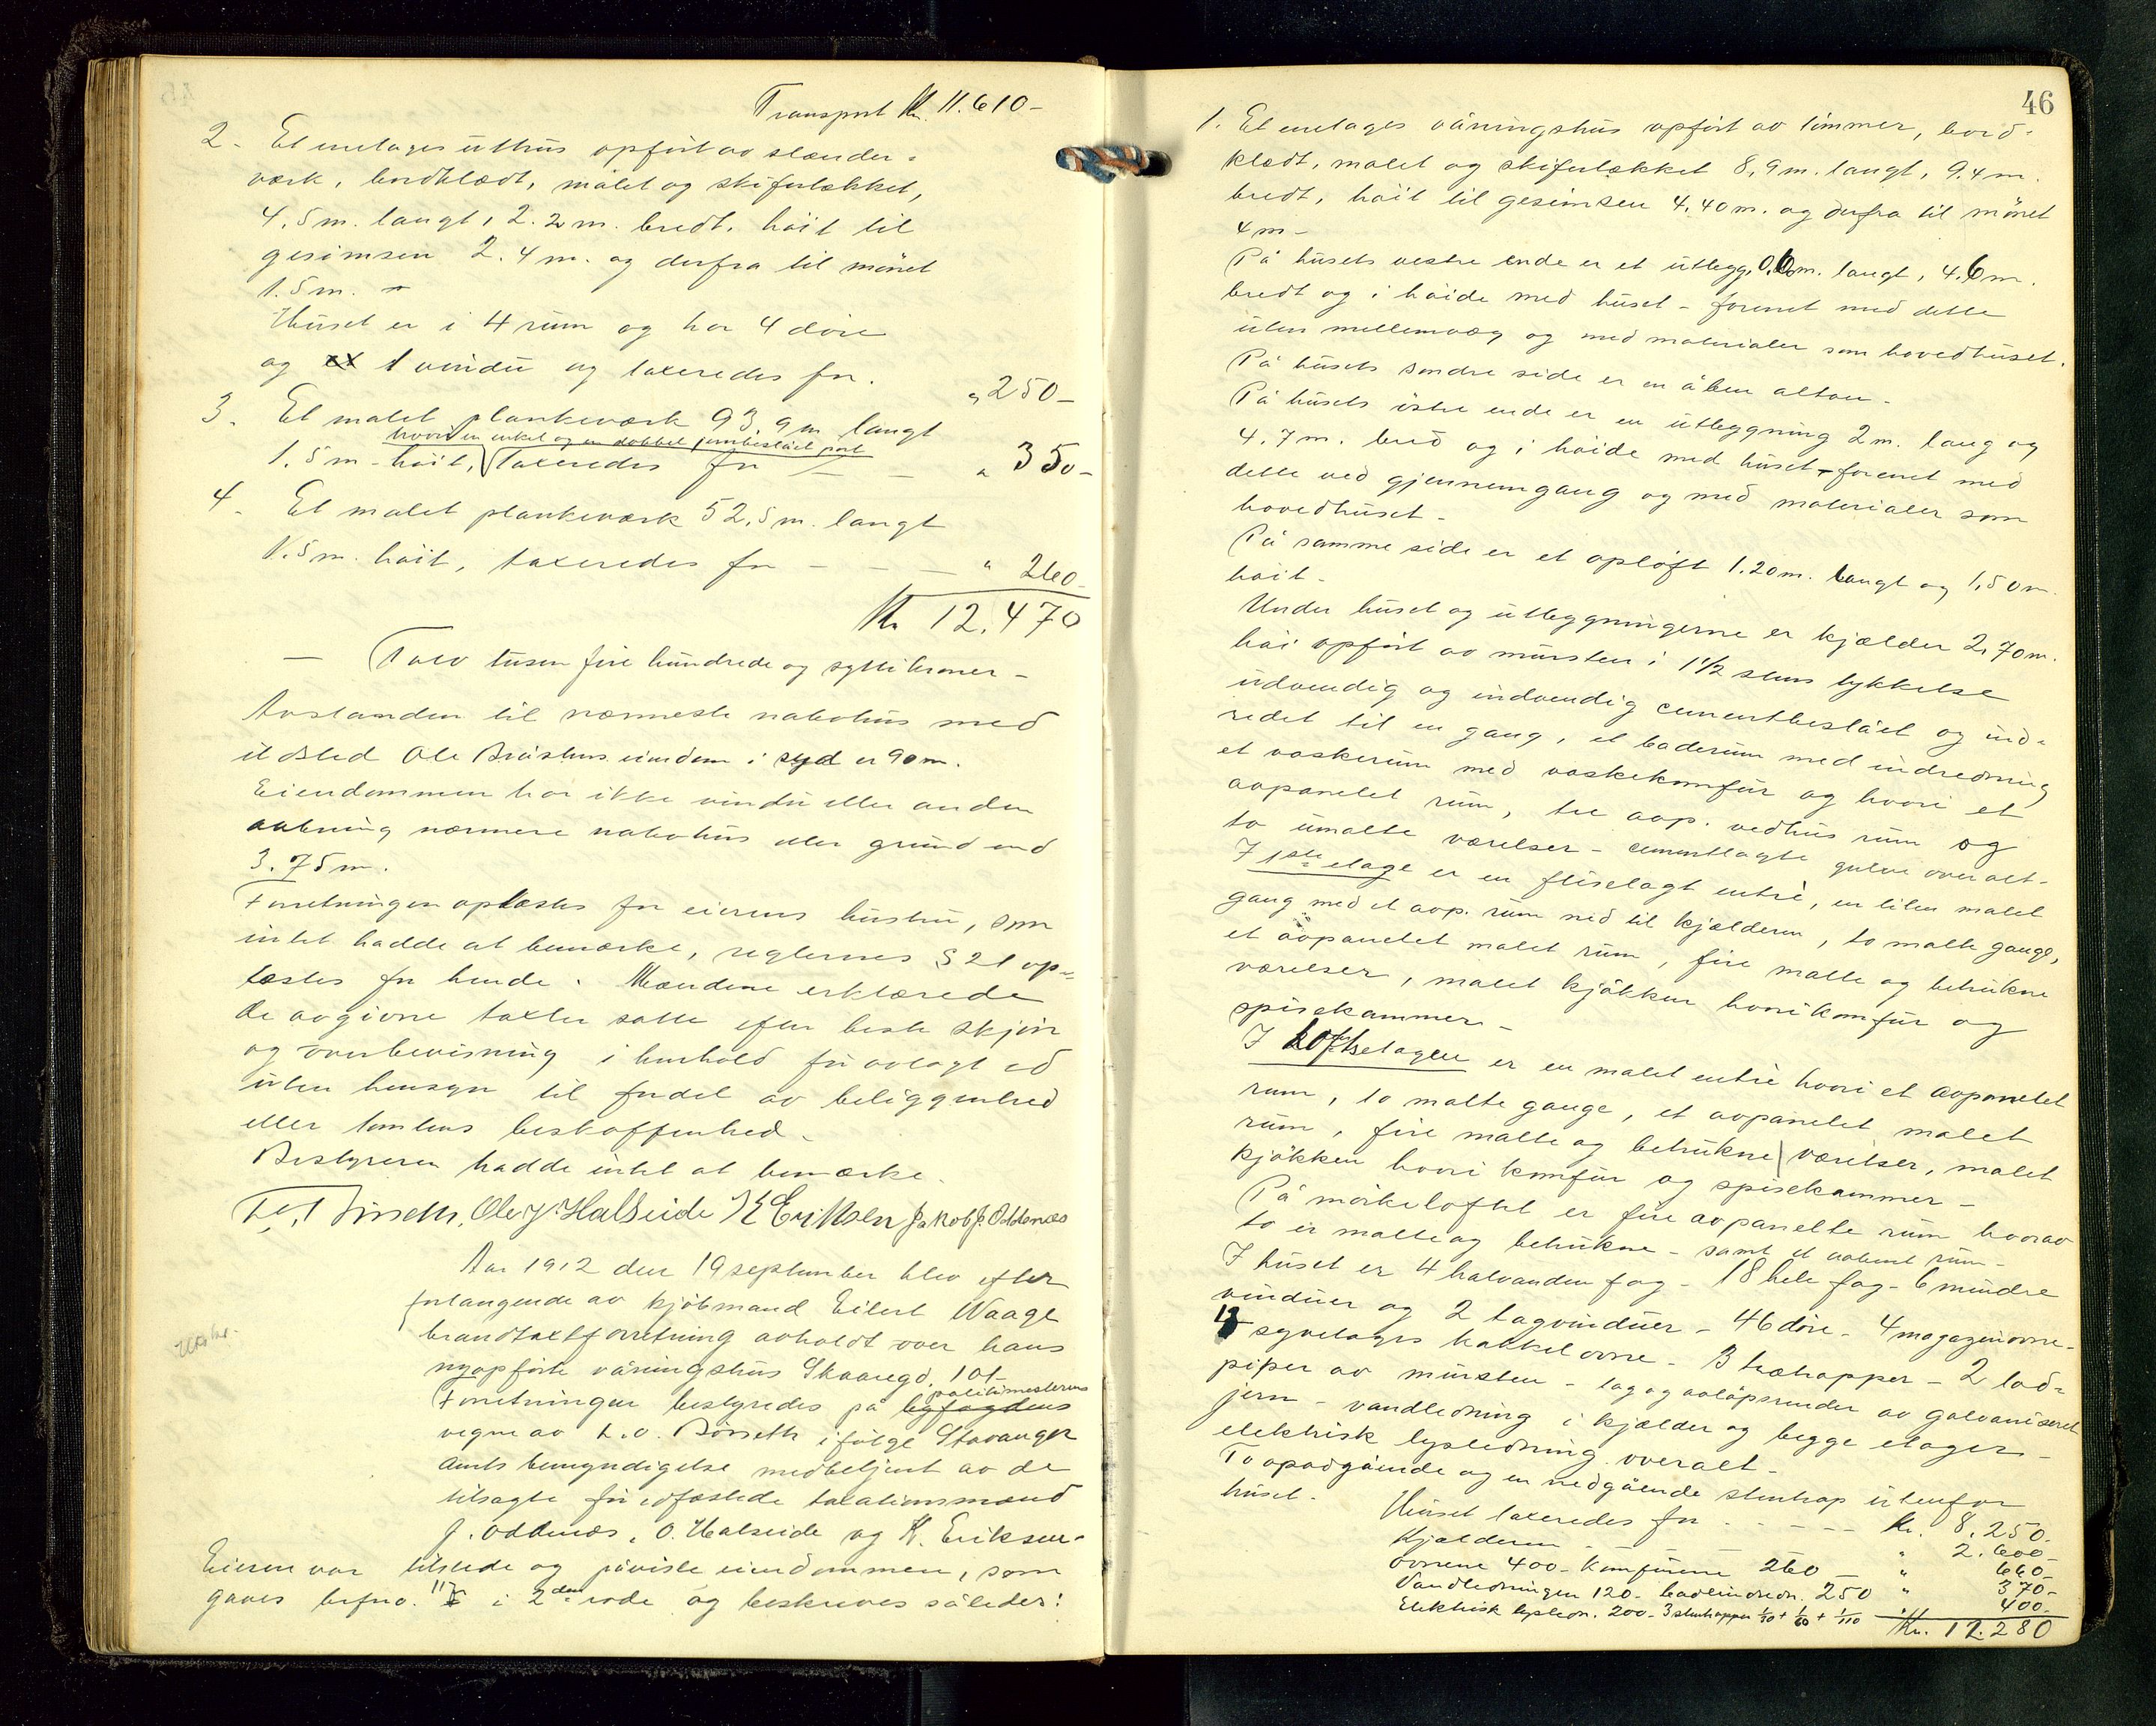 Transport Kr. 11.610-
2. Et enetages uthus opført av stænder-
værk, bordklædt, målet og skifertækket,
4.5m. langt, 2.2m. bredt, høit til
gesimsen 2.4m. og derfra til mønet
1.5m. -
Huset er i 4 rum og har 4 døre
og 1 vindu og taxeredes for. " 250-
3. Et malet plankeværk 93.9m langt
hvori en enkel og en dobbel jernbeslået port
1.5m- høit, taxeredes for - - " 350-
4. Et malet plankeværk 52.5m. langt
1.5m. høit, taxeredes for - - - " 260-
Kr 12.470
- Tolv tusen fire hundrede og sytti kroner -
Avstanden til nærmeste nabohus med
ildsted Ole eiendom i syd er 90m.
Eiendommen har ikke vindu eller anden
aabning nærmere nabohus eller grund end
3.75m.
Forretningen oplæstes for eierens hustru, som
intet hadde at bemærke, reglernes § 21 op-
læstes for hende. Mændene erklærede
de avgivne taxter satte efter beste skjøn
og overbevisning i henhold til avlagt ed
uten hensyn til fordel av beliggenhed
eller tomtens beskaffenhed.
Bestyreren hadde intet at bemærke.
Ole J. Halseide K Eriksen Jakob J. Oddenæs
Aar 1912 den 19 september blev efter
forlangende av kjøbmand Eilert Waage
brandtaxtforretning avholdt over hans
nyopførte våningshus Skaaregd. 101-
politimesterens
Forretningen bestyredes på byfogdens
vegne av L.O. Børseth ifølge Stavanger
amts bemyndigelse medbetjent av de
tilsagte før edfæstede taxationsmænd
J. Oddenæs, O. Halseide og K. Eriksen-
Eieren var tilstede og påviste eiendommen, som
gaves brfno. 117 i 2den rode og beskreves således:
46
1. Et enetages våningshus opført av tømmer, bord-
klædt, malet og skifertækket 8,9m. langt, 9.4m.
bredt, høit til gesimsen 4.40m. og derfra til mønet
4m-
På husets vestre ende er et utlegg, 0.6m. langt, 4.6m.
bredt og i høide med huset - forenet med dette
uten mellemvæg og med materialer som hovedhuset.
På husets søndre side er en åben altan-
På husets østre ende er en utbygning 2m. lang og
4.7m. bred og i høide med huset - forenet med
dette ved gjennemgang og med materialer som
hovedhuset-
På samme side er et opløft 1.20m. langt og 1,50m.
høit-
Under huset og utbygningerne er kjælder 2,70m.
høi opført av mursten i 1½ stens tykkelse
udvendig og indvendig cementbeslået og ind-
redet til en gang, et baderum med indredning
et vaskerum med vaskekomfur og hvori et
avpanelet rum, tre avp. vedhus rum og
to umalte værelser - cementlagte gulve overalt-
I 1ste etage er en fliselagt entrè, en liten malet
gang med et avp. rum ned til kjælderen, to malte gange,
et avpanelet malet rum, fire malte og betrukne
værelser, malet kjøkken hvori komfur og
spisekammer-
I Loftsetagen er en malet entrè hvori et avpanelet
rum, to malte gange, et avpanelet malet
rum, fire malte og betrukne værelser, malet
kjøkken hvori komfur og spisekammer-
På mørkeloftet er fire avpanelte rum hvorav
to er malte og betrukne - samt et aabent rum-
I huset er 4 halvanden fag - 18 hele fag - 6 mindre
vinduer og 2 tagvinduer - 46 døre - 4 magazinovne-
13 syvetages kakkelovne - 3 trætrapper - 2 lod-
piper av mursten - tag og avløpsrender av galvaniseret
jern - vandledning i kjælder og begge etager-
elektrisk lysledning overalt-
To opadgående og en nedgående stentrap utenfor
huset.
Huset taxeredes for - - - - Kr. 8.250.
Kjælderen - - - " 2.600-
Ovnene 400- Komfurene 260 - " 660-
Vandledningen 120- badeindredn. 250 " 370-
Elektrisk lysledn. 200- 3 stentrapper 1/30 + 1/60 + 1/110 " 400-
Kr. 12.280